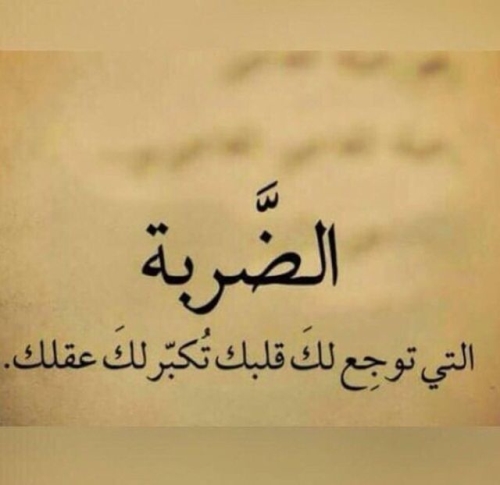 الضَّربة
التي توجِع لكَ قلبك تُكبّر لكَ عقلك.